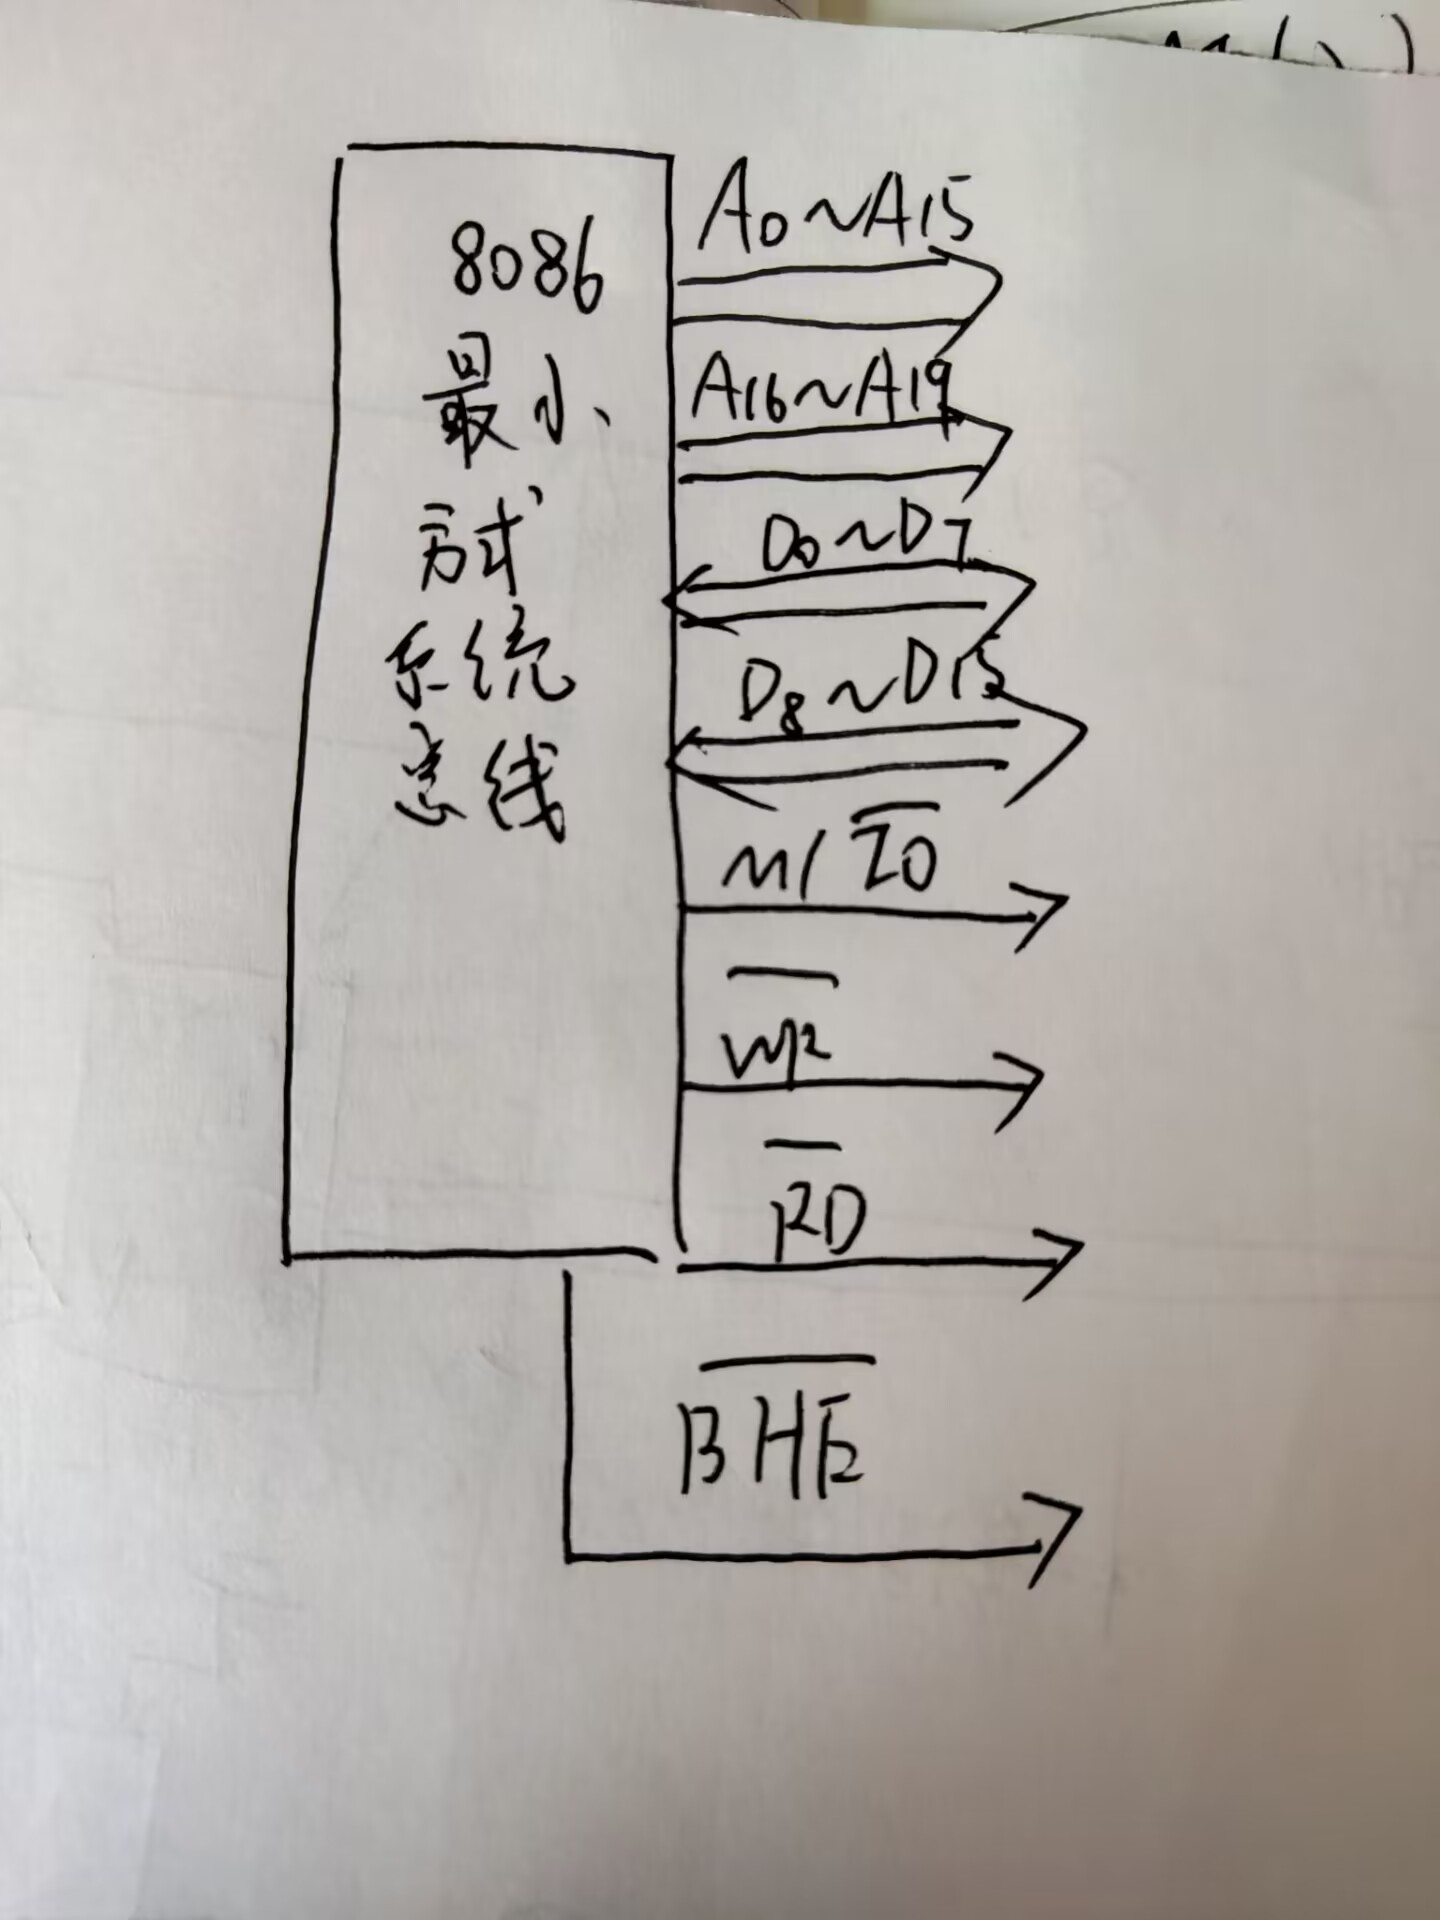 8086
最小
方式
系统
总线
A0~A15
A16~A19
D0~D7
D8~D15
M/I̅O̅
W̅R̅
R̅D̅
B̅H̅E̅